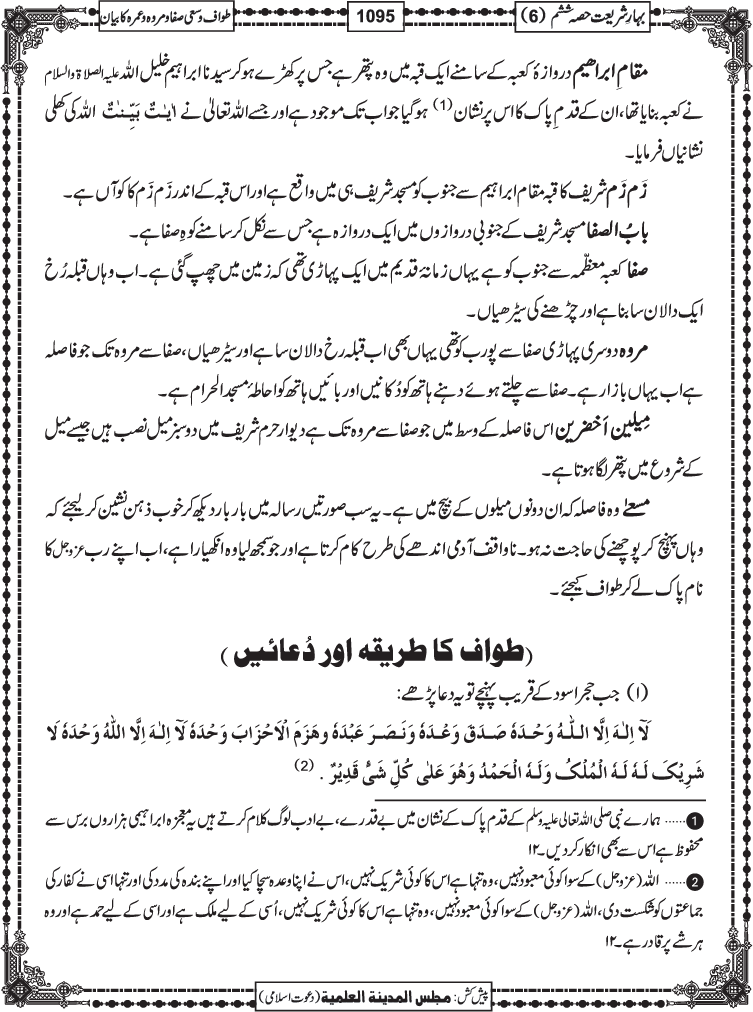 بہارِ شریعت حصہ ششم (6)
1095
طواف وسعی صفا و مروہ و عمرہ کا بیان
مقامِ ابراھیم دروازۂ کعبہ کے سامنے ایک قبہ میں وہ پتھر ہے جس پر کھڑے ہو کر سیدنا ابراہیم خلیل اللہ علیہ الصلاۃ والسلام
نے کعبہ بنایا تھا، ان کے قدمِ پاک کا اس پر نشان (1) ہو گیا جو اب تک موجود ہے اور جسے اللہ تعالیٰ نے اٰیٰتٌۢ بَیِّنٰتٌ اللہ کی کھلی
نشانیاں فرمایا۔
زَم زَم شریف کا قبہ مقام ابراہیم سے جنوب کو مسجد شریف ہی میں واقع ہے اور اس قبہ کے اندر زَم زَم کا کوآں ہے۔
بابُ الصفا مسجد شریف کے جنوبی دروازوں میں ایک دروازہ ہے جس سے نکل کر سامنے کوہِ صفا ہے۔
صفا کعبہ معظّمہ سے جنوب کو ہے یہاں زمانۂ قدیم میں ایک پہاڑی تھی کہ زمین میں چھپ گئی ہے۔ اب وہاں قبلہ رُخ
ایک دالان سا بنا ہے اور چڑھنے کی سیڑھیاں۔
مروہ دوسری پہاڑی صفا سے پورب کو تھی یہاں بھی اب قبلہ رخ دالان سا ہے اور سیڑھیاں، صفا سے مروہ تک جو فاصلہ
ہے اب یہاں بازار ہے۔ صفا سے چلتے ہوئے دہنے ہاتھ کو دُکانیں اور بائیں ہاتھ کو احاطۂ مسجد الحرام ہے۔
مِیلین اَخضرین اس فاصلہ کے وسط میں جو صفا سے مروہ تک ہے دیوار حرم شریف میں دو سبز میل نصب ہیں جیسے میل
کے شروع میں پتھر لگا ہوتا ہے۔
مسعےٰ وہ فاصلہ کہ ان دونوں میلوں کے بیچ میں ہے۔ یہ سب صورتیں رسالہ میں بار بار دیکھ کر خوب ذہن نشین کر لیجئے کہ
وہاں پہنچ کر پوچھنے کی حاجت نہ ہو۔ ناواقف آدمی اندھے کی طرح کام کرتا ہے اور جو سمجھ لیا وہ انکھیارا ہے، اب اپنے رب عزوجل کا
نام پاک لے کر طواف کیجئے۔
(طواف کا طریقہ اور دُعائیں)
(۱) جب حجر اسود کے قریب پہنچے تو یہ دعا پڑھے:
لَآ اِلٰـہَ اِلَّا اللّٰـہُ وَحْـدَہٗ صَدَقَ وَعْـدَہٗ وَنَصَرَ عَبْدَہٗ وَھَزَمَ الْاَحْزَابَ وَحْدَہٗ لَآ اِلٰـہَ اِلَّا اللّٰہُ وَحْدَہٗ لَا
شَرِیْکَ لَـہٗ لَـہُ الْمُلْکُ وَلَـہُ الْحَمْدُ وَھُوَ عَلٰی کُلِّ شَیْءٍ قَدِیْرٌ . (2)
1 ...... ہمارے نبی صلی اللہ تعالی علیہ وسلم کے قدم پاک کے نشان میں بے قدرے، بے ادب لوگ کلام کرتے ہیں یہ معجزہ ابراہیمی ہزاروں برس سے
محفوظ ہے اس سے بھی انکار کردیں۔ ۱۲
2 ...... اللہ (عزوجل) کے سوا کوئی معبود نہیں، وہ تنہا ہے اس کا کوئی شریک نہیں، اس نے اپنا وعدہ سچا کیا اور اپنے بندہ کی مدد کی اور تنہا اسی نے کفار کی
جماعتوں کو شکست دی، اللہ (عزوجل) کے سوا کوئی معبود نہیں، وہ تنہا ہے اس کا کوئی شریک نہیں، اُسی کے لیے ملک ہے اور اسی کے لیے حمد ہے اور وہ
ہر شے پر قادر ہے۔ ۱۲
پیش کش: مجلس المدینة العلمیة (دعوت اسلامی)